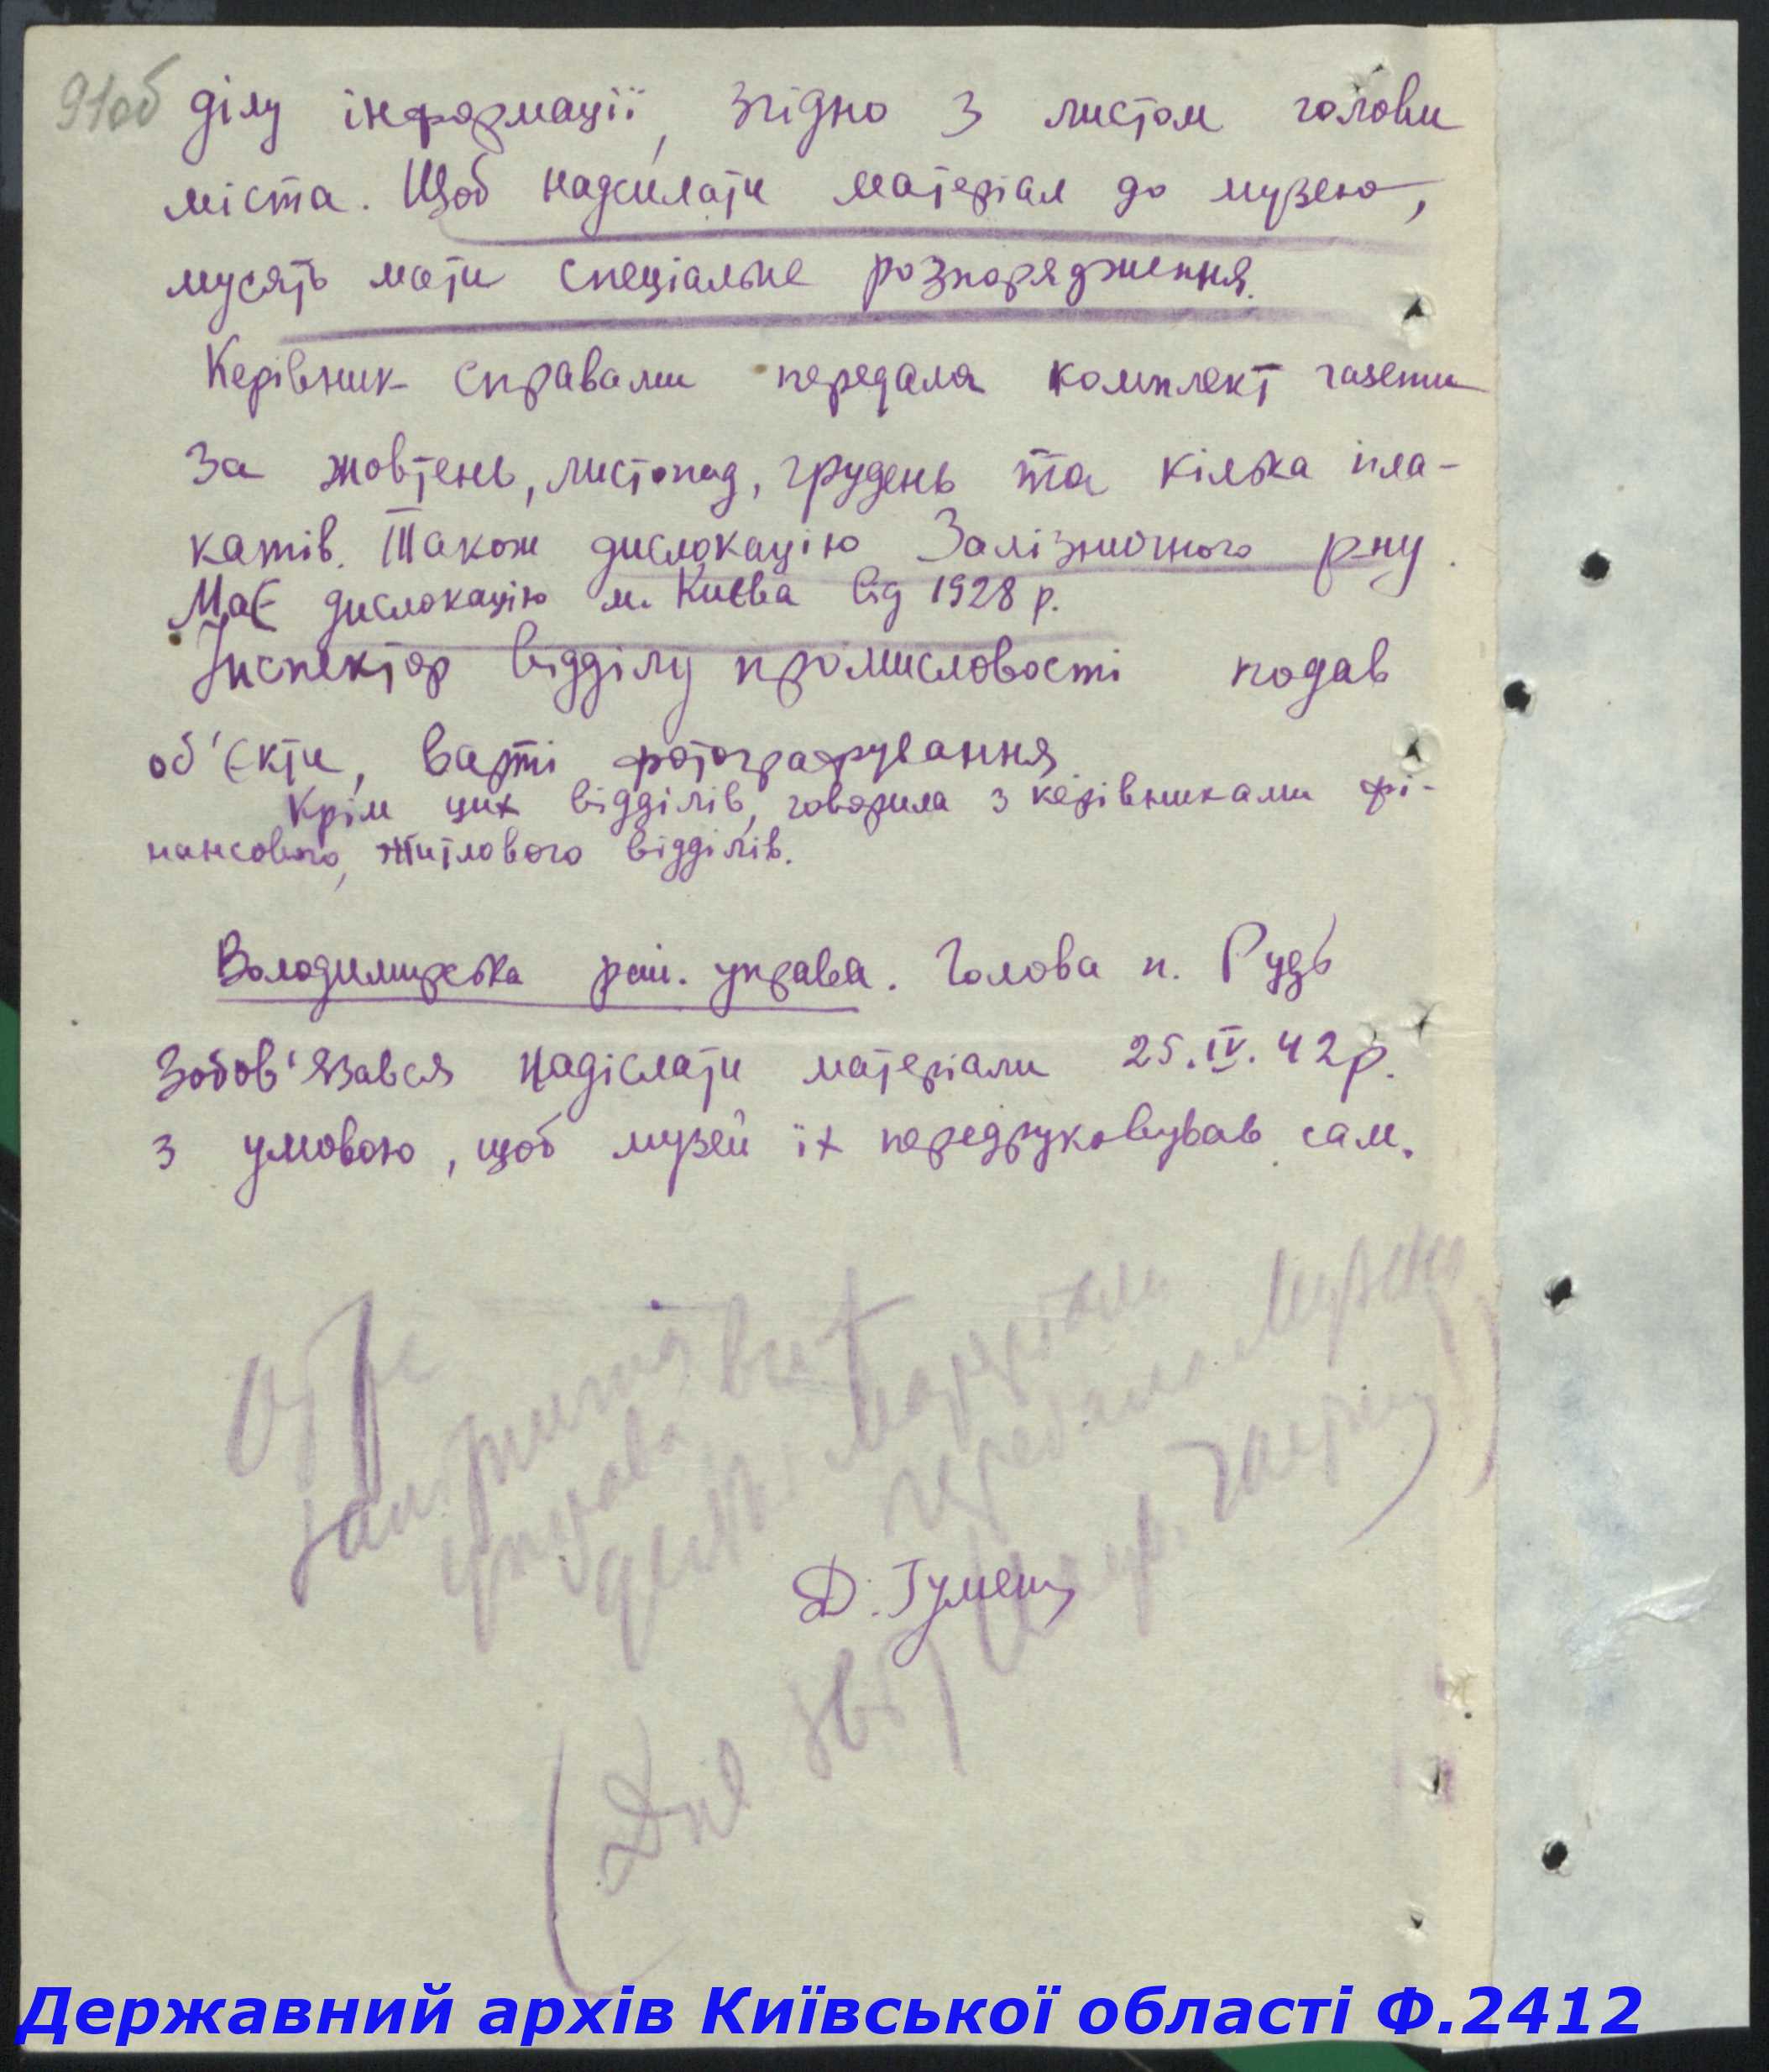 91об
ділу інформації, згідно з листом голови
міста. Щоб надсилати матеріал до музею,
мусять мати спеціальне розпорядження.
Керівник справами передала комплект газети
за жовтень, листопад, грудень та кілька пла-
катів. Також дислокацію Залізничного р-ну.
Має дислокацію м. Києва від 1928 р.
Інспектор відділу промисловості подав
об'єкти, варті фотографування
Крім цих відділів, говорила з керівниками фі-
нансового, житлового відділів.
Володимирська рай. управа. Голова п. Рудь
Зобов'язався надіслати матеріали 25.IV.42р.
з умовою, щоб музей їх передруковував сам.
управа
матеріали
передала Музею
Д. Гумен
Державний архів Київської області Ф.2412